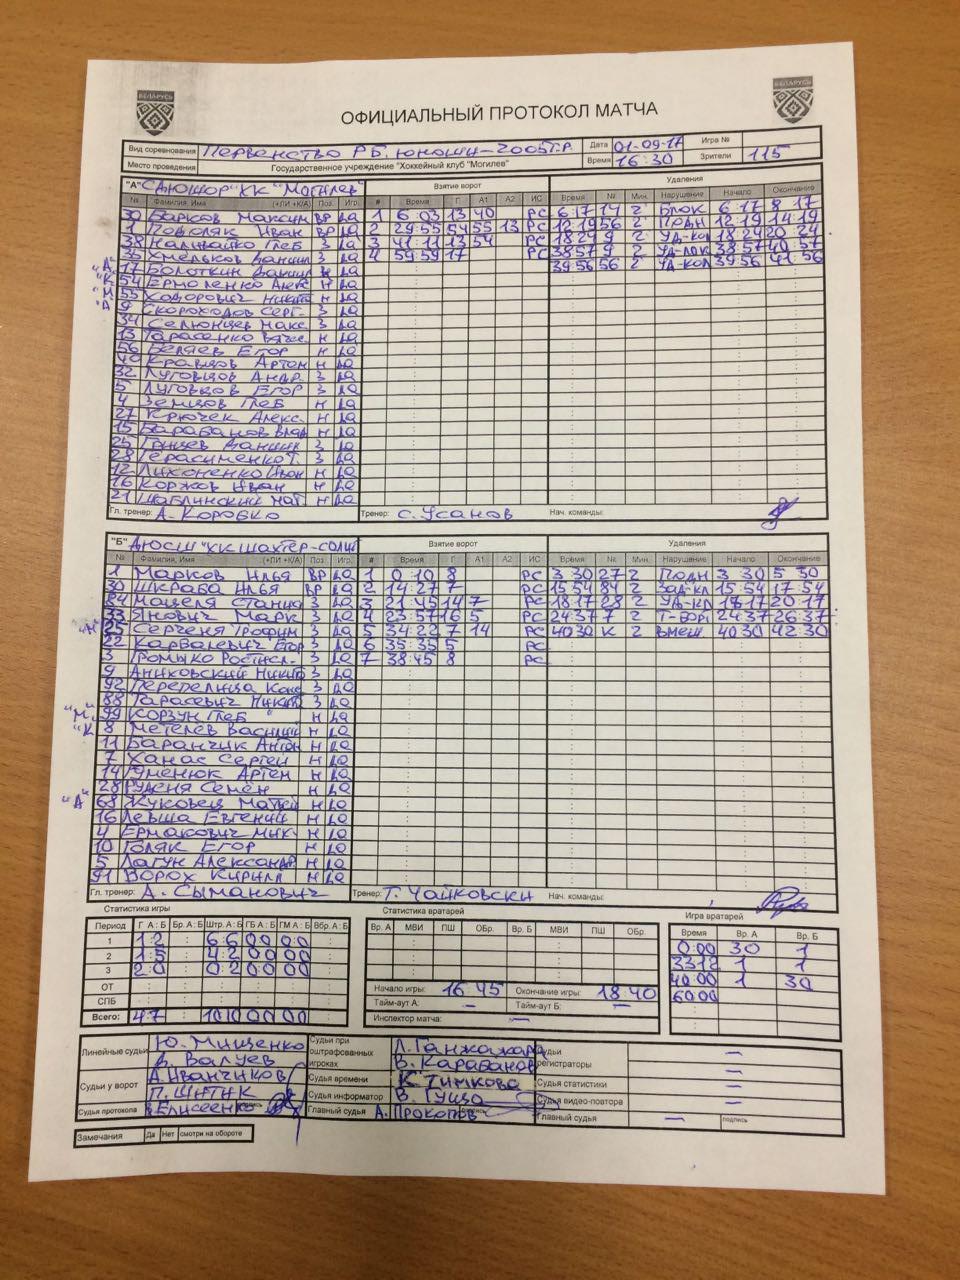 БЕЛАРУСЬ БЕЛАРУСЬ
ОФИЦИАЛЬНЫЙ ПРОТОКОЛ МАТЧА
Вид соревнования Первенство РБ. юноши-2005г.р. Дата 01-09-17 Игра №
Место проведения Государственное учреждение "Хоккейный клуб "Могилев" Время 16:30 Зрители 115
"А" СДЮШОР "ХК "Могилев" Взятие ворот Удаления
№ Фамилия, Имя (+ЛИ +К/А) Поз. Игр. # Время Г А1 А2 ИС Время № Мин. Нарушение Начало Окончание
30 Барков Максим ВР да 1 6:03 13 40 РС 6:17 17 2 Блок 6:17 8:17
1 Подоляк Иван ВР да 2 29:55 54 55 13 РС 12:19 56 2 Подн 12:19 14:19
38 Наливайко Глеб З да 3 41:11 13 54 РС 18:24 9 2 Уд-кол 18:24 20:24
35 Хмельков Даниил З да 4 59:59 17 РС 38:57 9 2 38:57 40:57
"А" 17 Болоткин Даниил Н да 39:56 56 2 Уд-кол 39:56 41:56
"К" 54 Ермоленко Алекс Н да
55 Ходорович Никита Н да
"А" 9 Скороходов Серг. З да
34 Селюнцев Макс З да
13 Тарасенко Вячес Н да
56 Беляев Егор Н да
40 Кравцов Артем Н да
32 Луговцов Андр. З да
5 Луговцов Егор З да
4 Земцов Глеб Н да
27 Крючек Алекс. Н да
15 Барабанов Влад Н да
25 Даниил З да
28 Герасименко Т. З да
12 Лихоненко Иван Н да
16 Коржов Иван Н да
21 Шаблинский Мат Н да
Гл. тренер: А. Коробко Тренер: С. Усанов Нач. команды:
"Б" ДЮСШ "ХК Шахтер-Солиг Взятие ворот Удаления
№ Фамилия, Имя (+ЛИ +К/А) Поз. Игр. # Время Г А1 А2 ИС Время № Мин. Нарушение Начало Окончание
1 Марков Илья ВР да 1 0:10 8 РС 3:30 27 2 Подн 3:30 5:30
30 Шкраба Илья ВР да 2 14:27 7 РС 15:54 84 2 Зад-кл 15:54 17:54
84 Мацеля Станис З да 3 21:45 14 7 РС 18:17 28 2 Уд-кл 18:17 20:17
33 Янович Марк З да 4 23:57 16 5 РС 24:37 7 2 24:37 26:37
"А" 25 Серченя Трофим З да 5 34:22 7 14 РС 40:30 К 2 Вмеш 40:30 42:30
22 Карвалевич Егор З да 6 35:35 5 РС
3 Громыко Ростисл- З да 7 38:45 8 РС
9 Аниховский Никит З да
92 Перепелица Конс З да
88 Тарасевич Никит З да
"М" 99 Корзун Глеб Н да
"К" 8 Метелев Василий Н да
11 Баранчик Антон Н да
7 Ханас Сергей Н да
14 Гуменюк Артем Н да
28 Рудсня Семен Н да
"А" 68 Жуковец Матвей Н да
16 Левша Евгений Н да
4 Ермакович Мик Н да
10 Голяк Егор Н да
5 Лагун Александр Н да
91 Ворох Кирилл Н да
Гл. тренер: А. Сыманович Тренер: Т. Чайковски Нач. команды:
Статистика игры Статистика вратарей Игра вратарей
Период Г А : Б Бр. А : Б Штр. А : Б ГБ А : Б ГМ А : Б Вбр. А : Б Вр. А МВИ ПШ ОБр. Вр. Б МВИ ПШ ОБр. Время Вр. А Вр. Б
1 1:2 6:6 0:0 0:0 0:00 30 1
2 1:5 4:2 0:0 0:0 33:12 1 1
3 2:0 0:2 0:0 0:0 40:00 1 30
ОТ Начало игры: 16 45 Окончание игры: 18 40 60:00
СПБ Тайм-аут А: — Тайм-аут Б: —
Всего: 4:7 10:10 0:0 0:0 Инспектор матча: —
Линейные судьи Ю. Мищенко Судьи при оштрафованных игроках Л. Ганжажара Судьи регистраторы —
А. Валуев В. Карабанов —
Судьи у ворот А. Иванчиков Судья времени К Тимкова Судья статистики —
П. Шнтик Судья информатор В. Гуща Судья видео-повтора —
Судья протокола В. Елисеенко подпись Главный судья А. Прокопов подпись Главный судья — подпись
Замечания Да Нет смотри на обороте